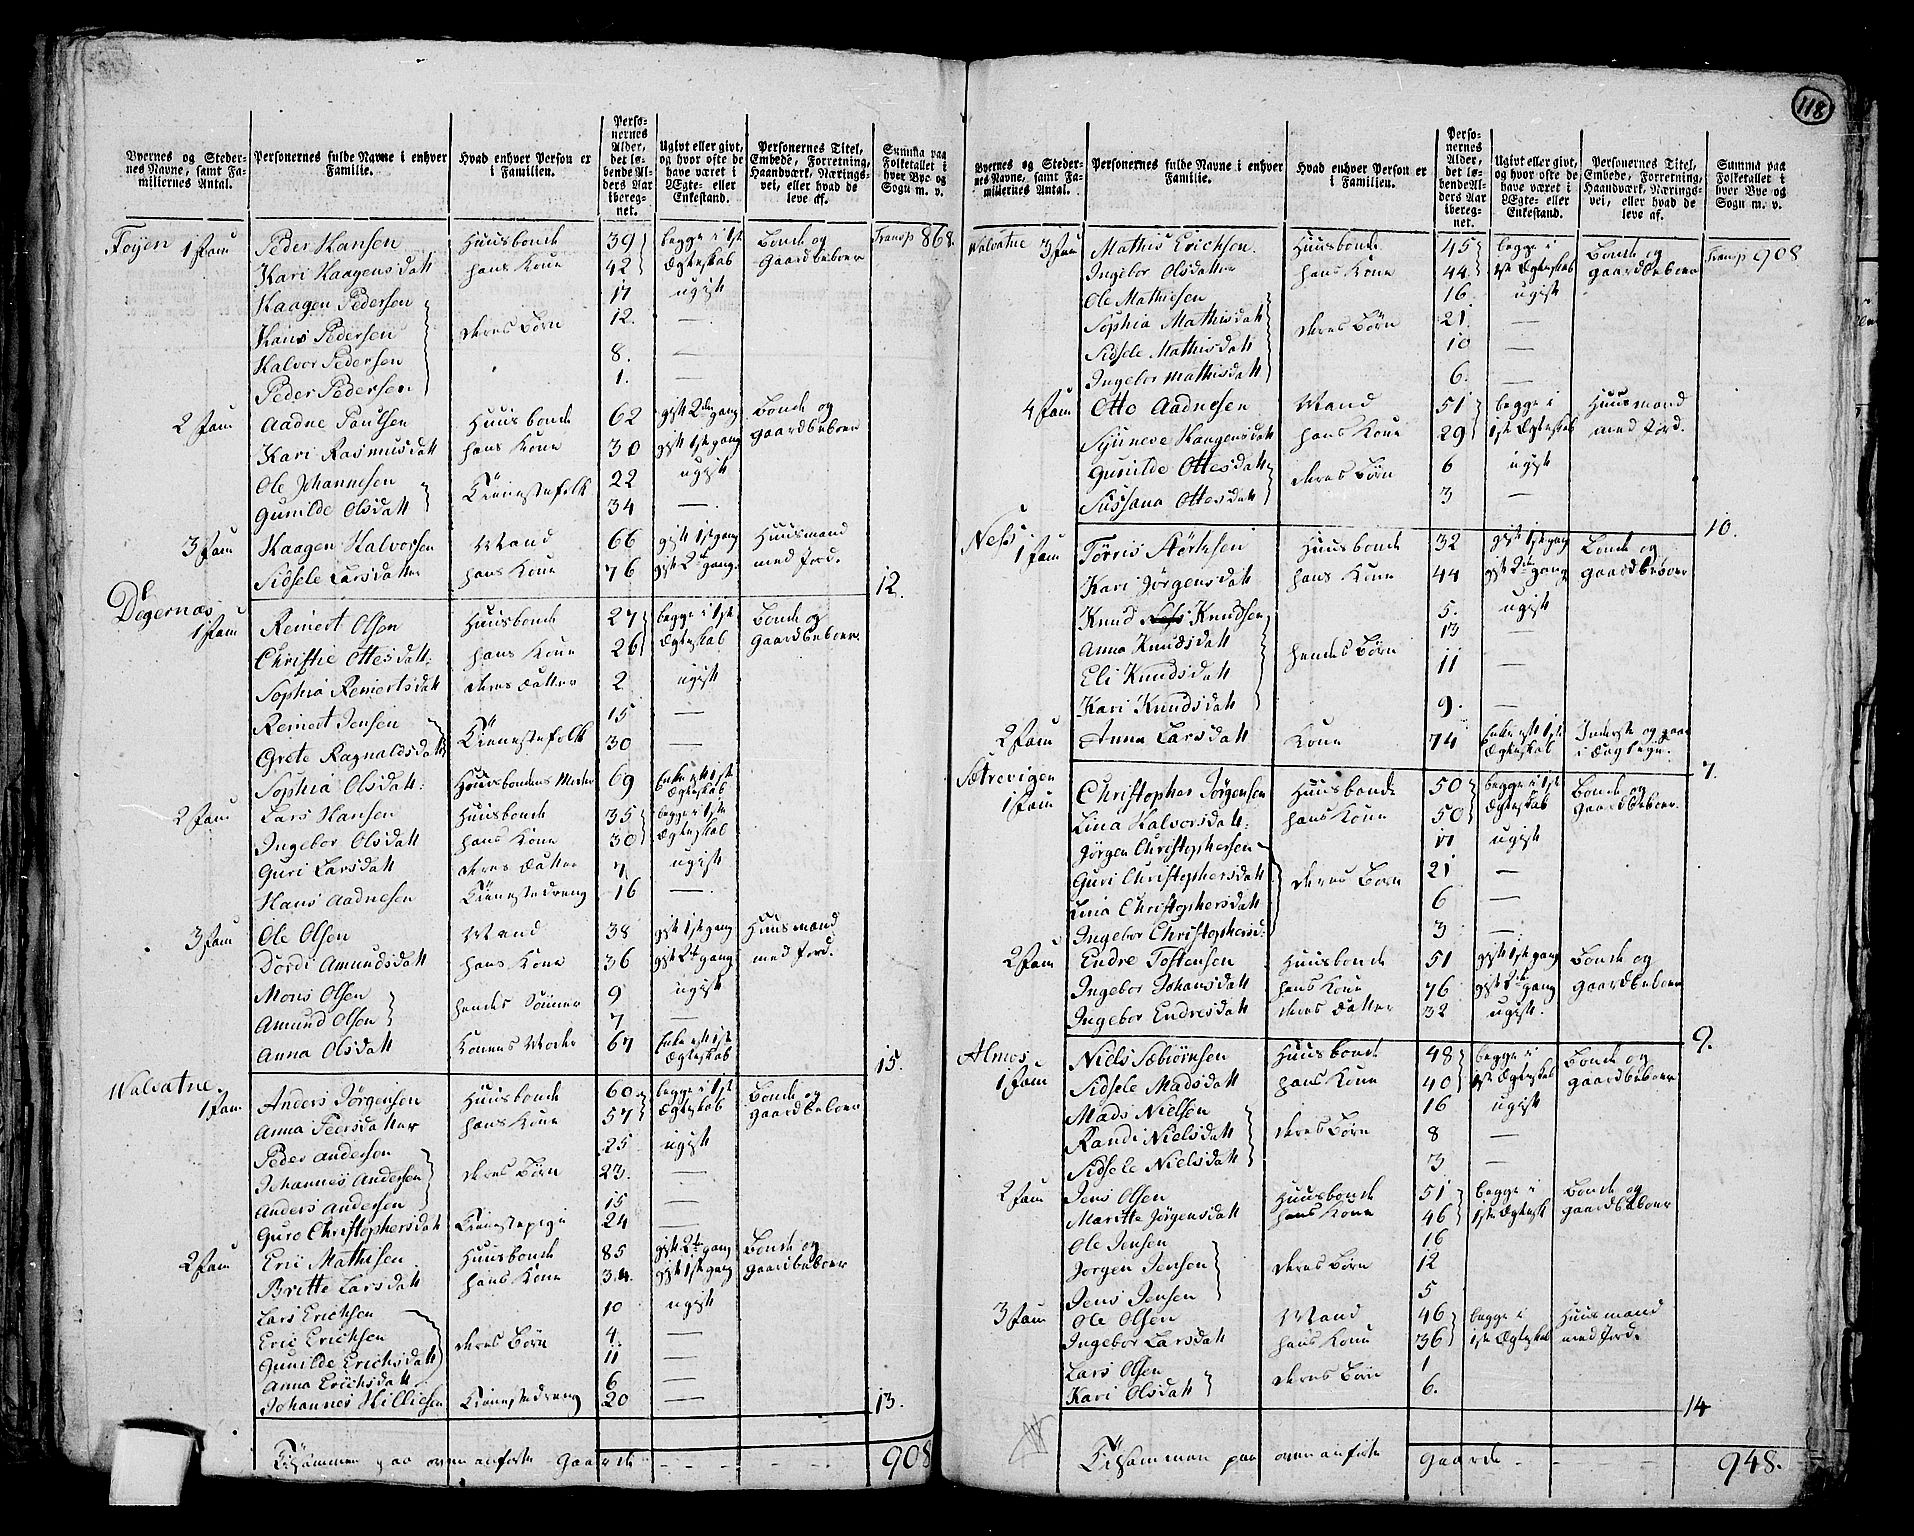 118
Byernes og Stedernes Navne, samt Familiernes Antal. | Personernes fulde Navne i enhver Familie. | Hvad enhver Person er i Familien. | Personernes Alder, det løbende Alders Aar iberegnet. | Ugivt eller givt, og hvor ofte de have været i Ægte- eller Enkestand. | Personernes Titel, Embede, Forretning, Haandværk, Næringsvei, eller hvad de leve af. | Summa paa Folketallet i hver Bye og Sogn m. v.
Föyen 1 Fam | Peder Hansen | Huusbonde | 39 | begge i 1ste | Bonde og | Transp 868.
Kari Haagensdatt | hans Kone | 42 | Ægteskab | Gaardbeboer
Haagen Pedersen | 17 | ugift
Hans Pedersen | deres Börn | 12. | —
Halvor Pedersen | 8. | —
Peder Pedersen | 1. | —
2 Fam | Aadne Poulsen | Huusbonde | 62 | gift 2den gang | Bonde og
Kari Rasmusdatt | hans Kone | 30 | gift 1ste gang | Gaardbeboer
Ole Johannesen | Tienestefolk | 22 | ugift
Gunilde Olsdatt | 34 | —
3 Fam | Haagen Halvorsen | Mand | 66 | gift 1ste gang | Huusmand
Sidsele Larsdatter | hans Kone | 76 | gift 2den gang. | med Jord.
12.
Degernæs 1 Fam | Reinert Olsen | Huusbonde | 27 | begge i 1ste | Bonde og
Christie Ottesdatt: | hans Kone | 26 | Ægteskab | Gaardbeboer
Sophia Reinertsdatt | deres Datter | 2 | ugift
Reinert Jensen | Tienestefolk | 15 | —
Grete Ragnaldsdatt | 30 | —
Sophia Olsdatt: | Huusbondens Moder | 69 | Enke eft 1ste Ægteskab
2 Fam | Lars Hansen | Huusbonde | 35 | begge i 1ste
Ingebor Olsdatt | hans Kone | 30 | Ægteskab
Guri Larsdatt | deres Datter | 7 | ugift
Hans Aadnesen | Tienestedreng | 16 | —
3 Fam | Ole Olsen | Mand | 38 | gift 1ste gang | Huusmand
Dordi Amundsdatt | hans Kone | 36 | gift 2de gang | med Jord.
Mons Olsen | hendes Sönner | 9 | ugift
Amund Olsen | 7 | —
Anna Olsdatt | Konens Moder | 67 | Enke eft 1ste Ægteskab
15.
Walvatne 1 Fam | Anders Jörgensen | Huusbonde | 60 | begge i 1ste | Bonde og
Anna Peersdatter | hans Kone | 57 | Ægteskab | Gaardbeboer
Peder Andersen | 25 | ugift
Johannes Andersen | deres Börn | 23. | —
Anders Andersen | 15 | —
Guro Christophersdatt | Tienestepige | 24 | —
2 Fam | Eric Mathisen | Huusbonde | 85 | gift 2de gang | Bonde og
Britte Larsdatt | hans Kone | 34. | gift 1ste gang | Gaardbeboer
Lars Erichsen | 10 | ugift
Eric Erichsen | deres Börn | 4. | —
Gunilde Erichsdatt | 11 | —
Anna Erichsdatt | 6 | —
Johannes Hilliesen | Tienestedreng | 20 | —
13.
Tilsammen paa ovenanförte Gaarde - - - - 908
Byernes og Stedernes Navne, samt Familiernes Antal. | Personernes fulde Navne i enhver Familie. | Hvad enhver Person er i Familien. | Personernes Alder, det løbende Alders Aar iberegnet. | Ugivt eller givt, og hvor ofte de have været i Ægte- eller Enkestand. | Personernes Titel, Embede, Forretning, Haandværk, Næringsvei, eller hvad de leve af. | Summa paa Folketallet i hver Bye og Sogn m. v.
Walvatne 3 Fam | Mathis Erichsen | Huusbonde | 45 | begge i | Bonde og | Transp 908
Ingebor Olsdatter | hans Kone | 44 | 1ste Ægteskab | Gaardbeboer
Ole Mathiesen | 16 | ugift
Sophia Mathisdatt | deres Börn | 21. | —
Sidsele Mathisdatt | 10 | —
Ingebor Mathisdatt | 6. | —
4 Fam | Otto Aadnesen | Mand | 51 | begge i | Huusmand
Sjuneve Haagensdatt | hans Kone | 29 | 1ste Ægteskab | med Jord.
Gunilde Ottesdatt | deres Börn | 6 | ugift
Sussana Ottesdatt | 3 | —
10.
Ness 1 Fam | Törris Störkesen | Huusbonde | 32 | gift 1ste gang | Bonde og
Kari Jörgensdatt | hans Kone | 44 | gift 2de gang | Gaardbeboer
Knud Knudsen | 5. | ugift
Anna Knudsdatt | hendes Börn | 13 | —
Eli Knudsdatt | 11 | —
Kari Knudsdatt | 9. | —
2 Fam | Anna Larsdatt | Kone | 74 | Enke eft 1ste Ægteskab | Inderste og gaar i Daglegn.
7.
Sætrevigen 1 Fam | Christopher Jörgensen | Huusbonde | 50 | begge i 1ste | Bonde og
Lina Halvorsdatt: | hans Kone | 50 | Ægteskab | Gaardbeboer.
Jörgen Christophersen | 17 | ugift
Guri Christophersdatt | deres Börn | 21 | —
Lina Christophersdatt | 6 | —
Ingebor Christophersd: | 3 | —
2 Fam | Endre Tostensen | Huusbonde | 51 | gift 1ste gang | Bonde og
Ingebor Johansdatt | hans Kone | 76 | gift 2de gang | Gaardbeboer
Ingebor Endresdatt | deres Datter | 32 | ugift.
9.
Almos 1 Fam | Niels Sæbiörnsen | Huusbonde | 48 | begge i | Bonde og
Sidsele Madsdatt | hans Kone | 40 | 1ste Ægteskab | Gaardbeboer
Mads Nielsen | 16 | ugift
Randi Nielsdatt | deres Börn | 8 | —
Sidsele Nielsdatt | 3 | —
2 Fam | Jens Olsen | Huusbonde | 51 | begge i | Bonde og
Maritte Jörgensdatt | hans Kone | 46 | 1ste Ægtesk | Gaardbeboer
Ole Jensen | 16
Jörgen Jensen | deres Börn | 12
Jens Jensen | 5
3 Fam | Ole Olsen | Mand | 46 | begge i | Huusmand
Ingebor Larsdatt | hans Kone | 36 | 1ste Ægteskab | med Jord.
Lars Olsen | deres Börn | 1
Kari Olsdatt | 6.
14
Tilsammen paa ovenanförte Gaarde - - - 948.